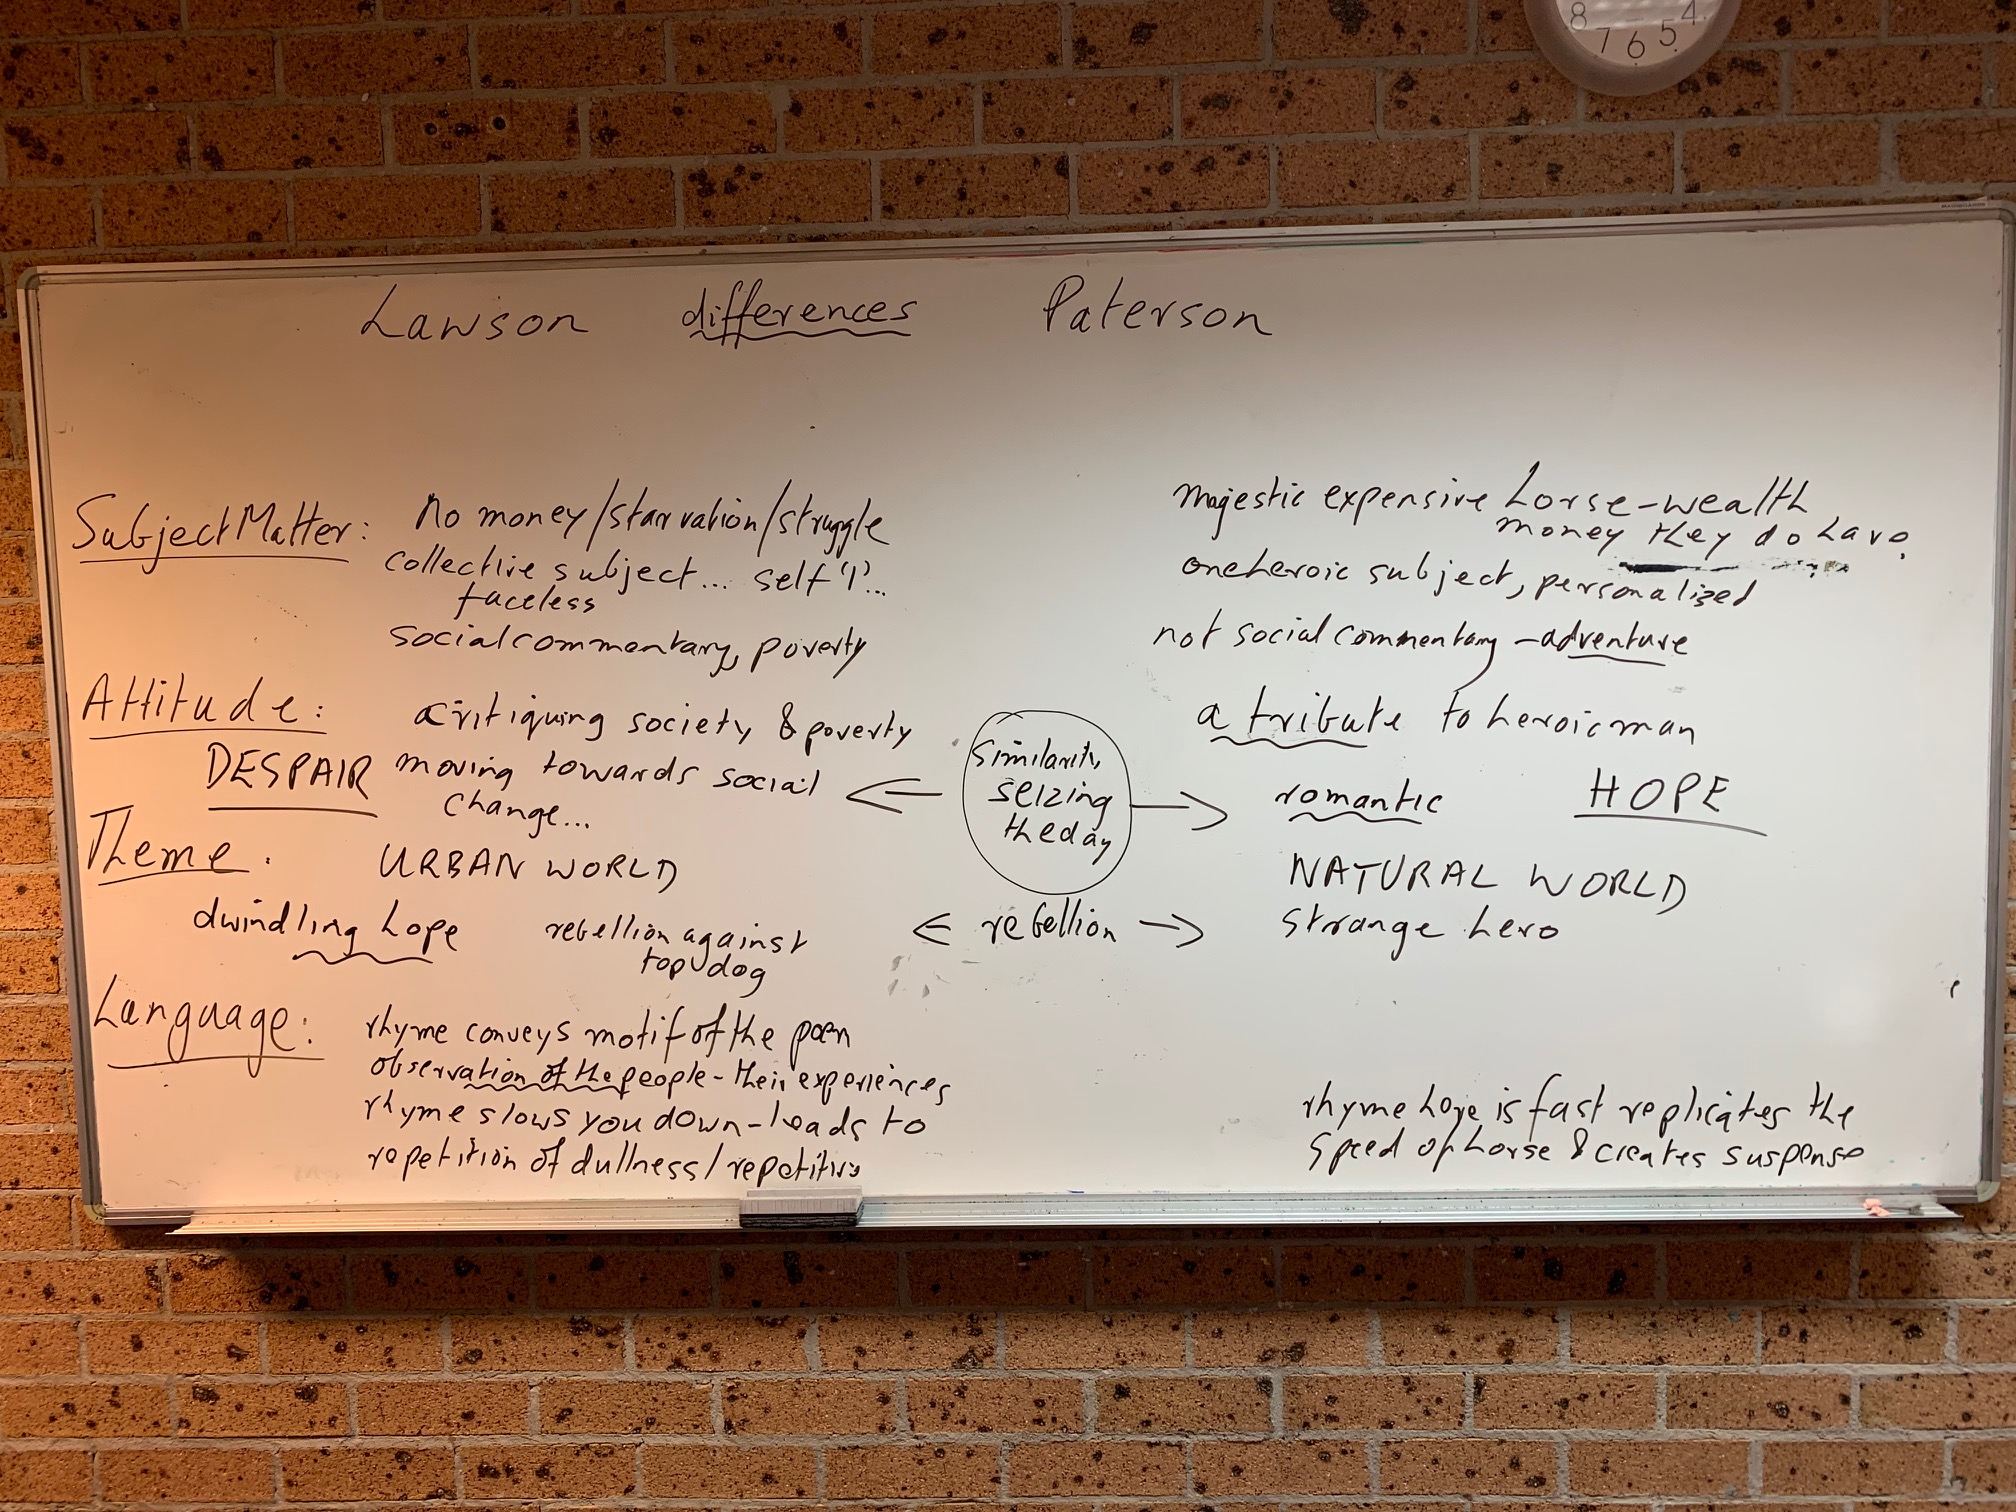 8 7 6 5 4
Lawson differences Paterson
Subject Matter: No money/starvation/struggle
collective subject... self 'I'...
faceless
social commentary, poverty
majestic expensive horse-wealth
money they do have
one heroic subject, personalized
not social commentary - adventure
Attitude: critiquing society & poverty
DESPAIR moving towards social
change...
similarity
seizing
the day
a tribute to heroic man
romantic HOPE
Theme: URBAN WORLD
dwindling hope rebellion against
top dog
← rebellion →
NATURAL WORLD
strange hero
Language: rhyme conveys motif of the poem
observation of the people - their experiences
rhyme slows you down - leads to
repetition of dullness/repetitive
rhyme here is fast replicates the
speed of horse & creates suspense